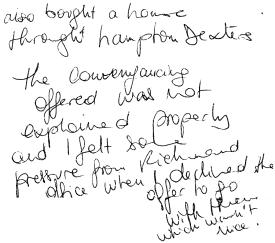 also bought a house
throught hampton Dexters
The conveyancing
offered was not
explained properly
and I felt some
pressure from Richmond
office when I declined the
offer to go
with them
which wasn't
nice.